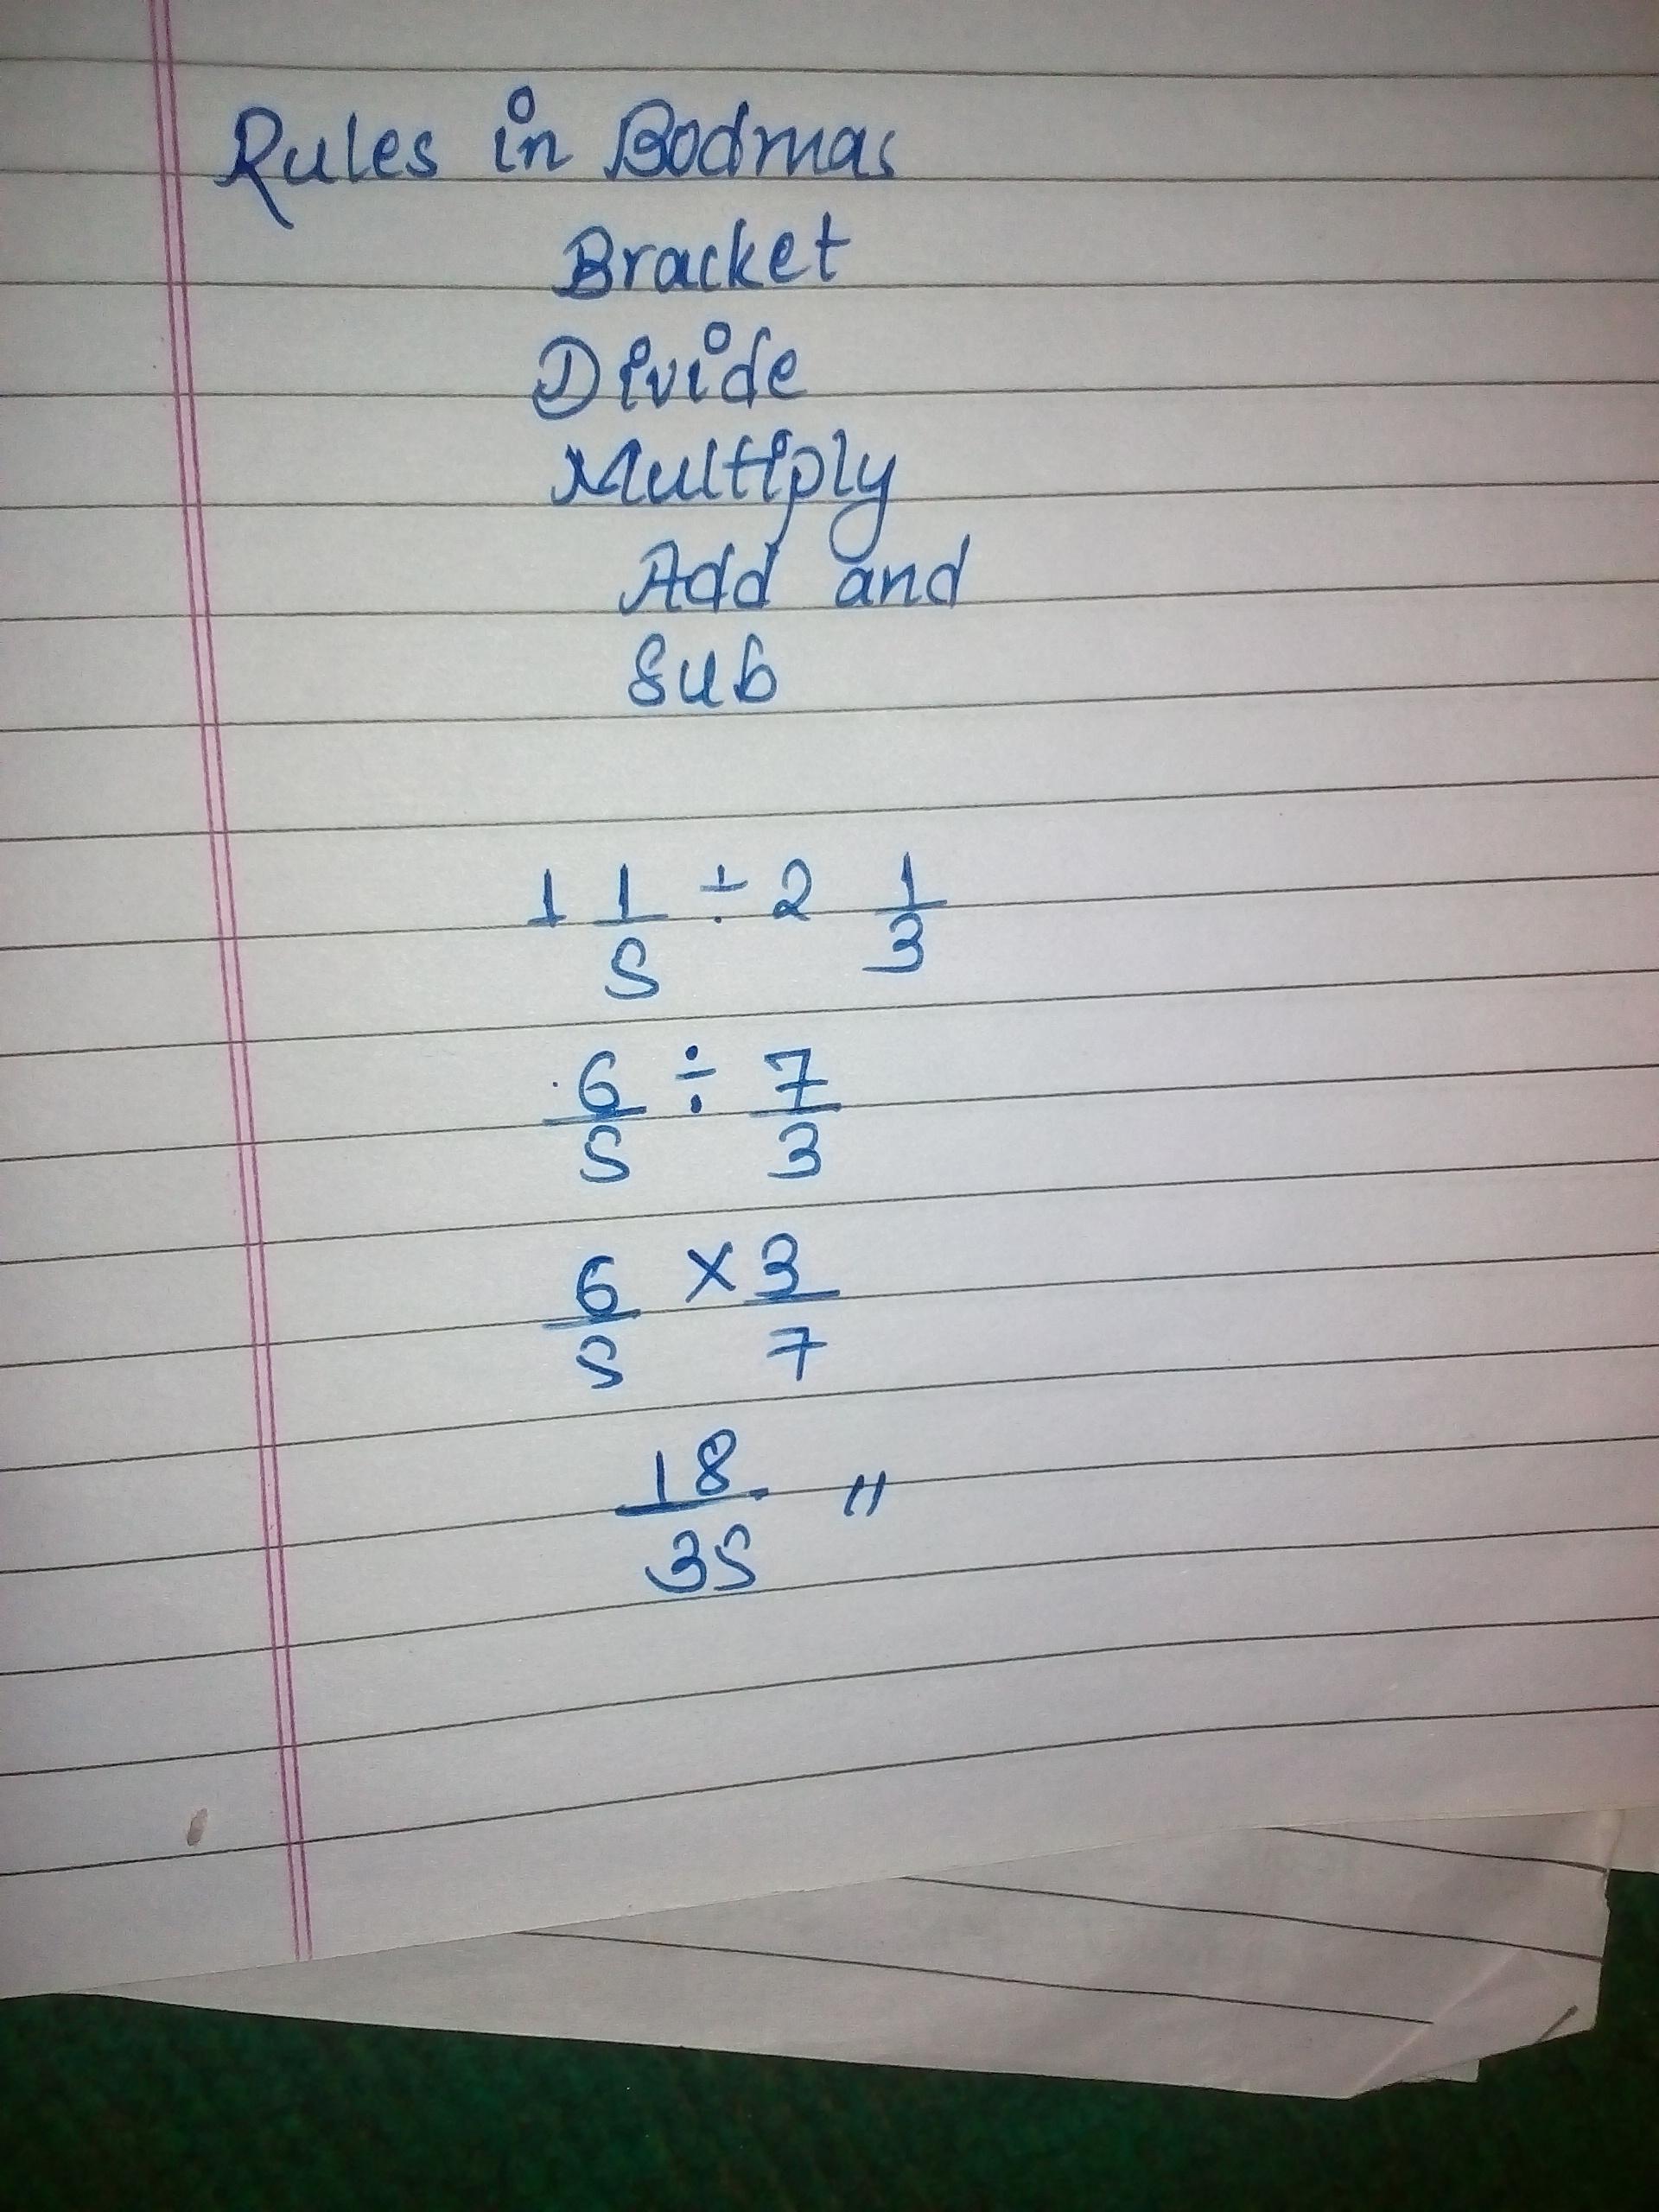 Rules in Bodmas
Bracket
Divide
Multiply
Add and
Sub
1 1/5 ÷ 2 1/3
6/5 ÷ 7/3
6/5 × 3/7
18/35 "